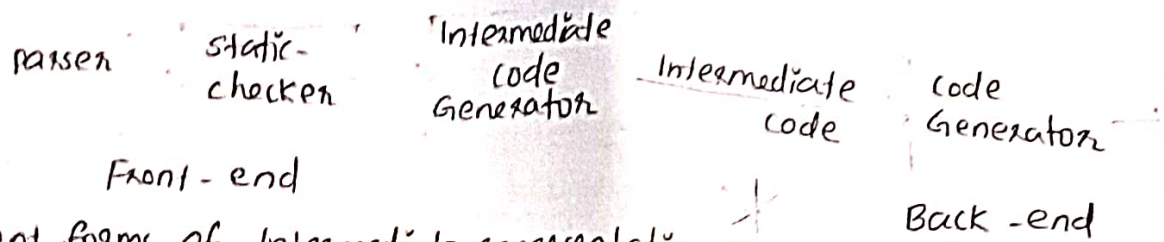 parser
static-
checker
Intermediate
code
Generator
Intermediate
code
code
Generator
Front-end
Back-end
forms of